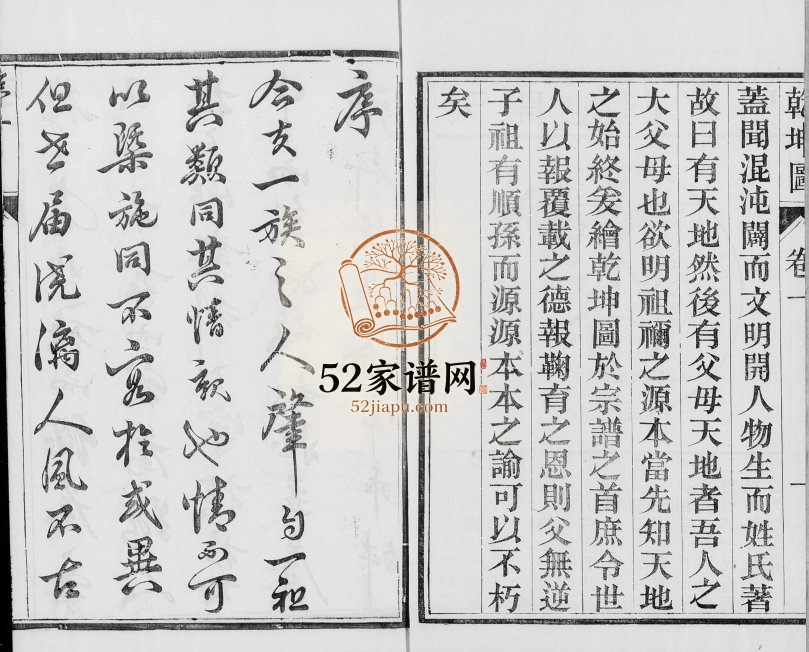 乾坤圖 卷一 一
蓋聞混沌闢而文明開人物生而姓氏著
故曰有天地然後有父母天地者吾人之
大父母也欲明祖禰之源本當先知天地
之始終爰繪乾坤圖於宗譜之首庶令世
人以報覆載之德報鞠育之恩則父無逆
子祖有順孫而源源本本之論可以不朽
矣
序
今夫一族之人肇自一祖
其類同其情親也情而可
以槩施同不容於或異
但世届澆漓人風不古
52家谱网
52jiapu.com